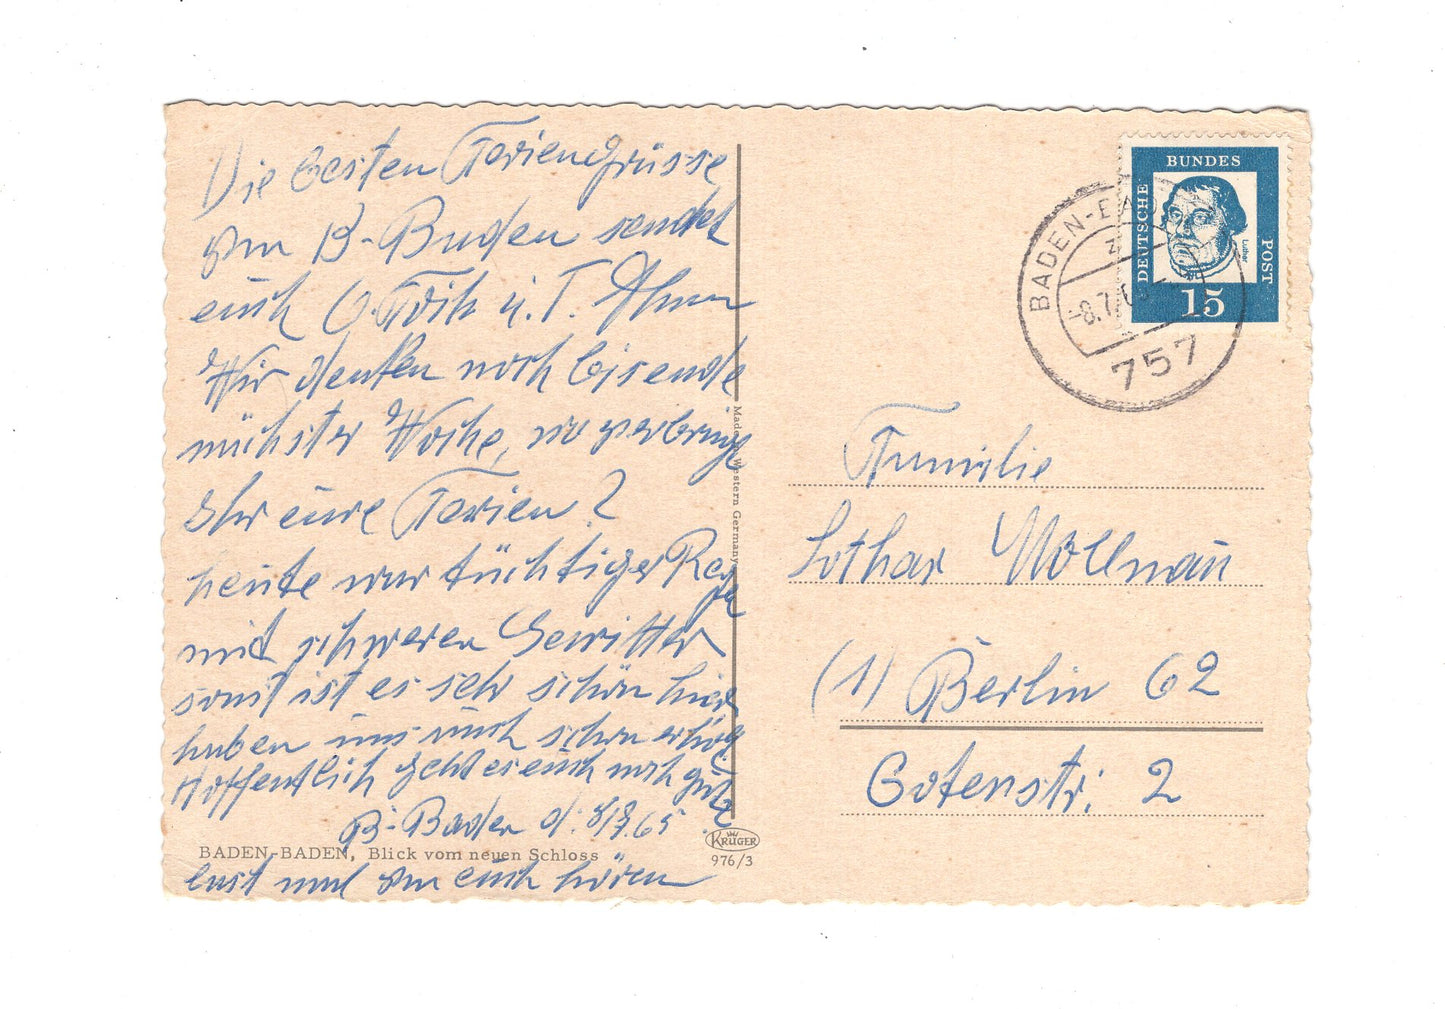 Die besten Feriengrüsse
von B-Baden sendet
euch O. Fritz u. T. 
Wir denken noch bis ende
nächster Woche, wo verbringt
Ihr eure Ferien?
heute war tüchtiger Regen
mit schweren Gewitter
sonst ist es sehr schön hier
haben uns auch schon erholt
Hoffentlich geht es euch noch gut
B-Baden d. 8/7.65
BADEN-BADEN, Blick vom neuen Schloss
Last mal von euch hören
Made in Western Germany
KRÜGER
976/3
DEUTSCHE
BUNDES
POST
Luther
15
BADEN-BADEN
-8.7.6
757
Familie
Lothar Mollnau
(1) Berlin 62
Gotenstr. 2